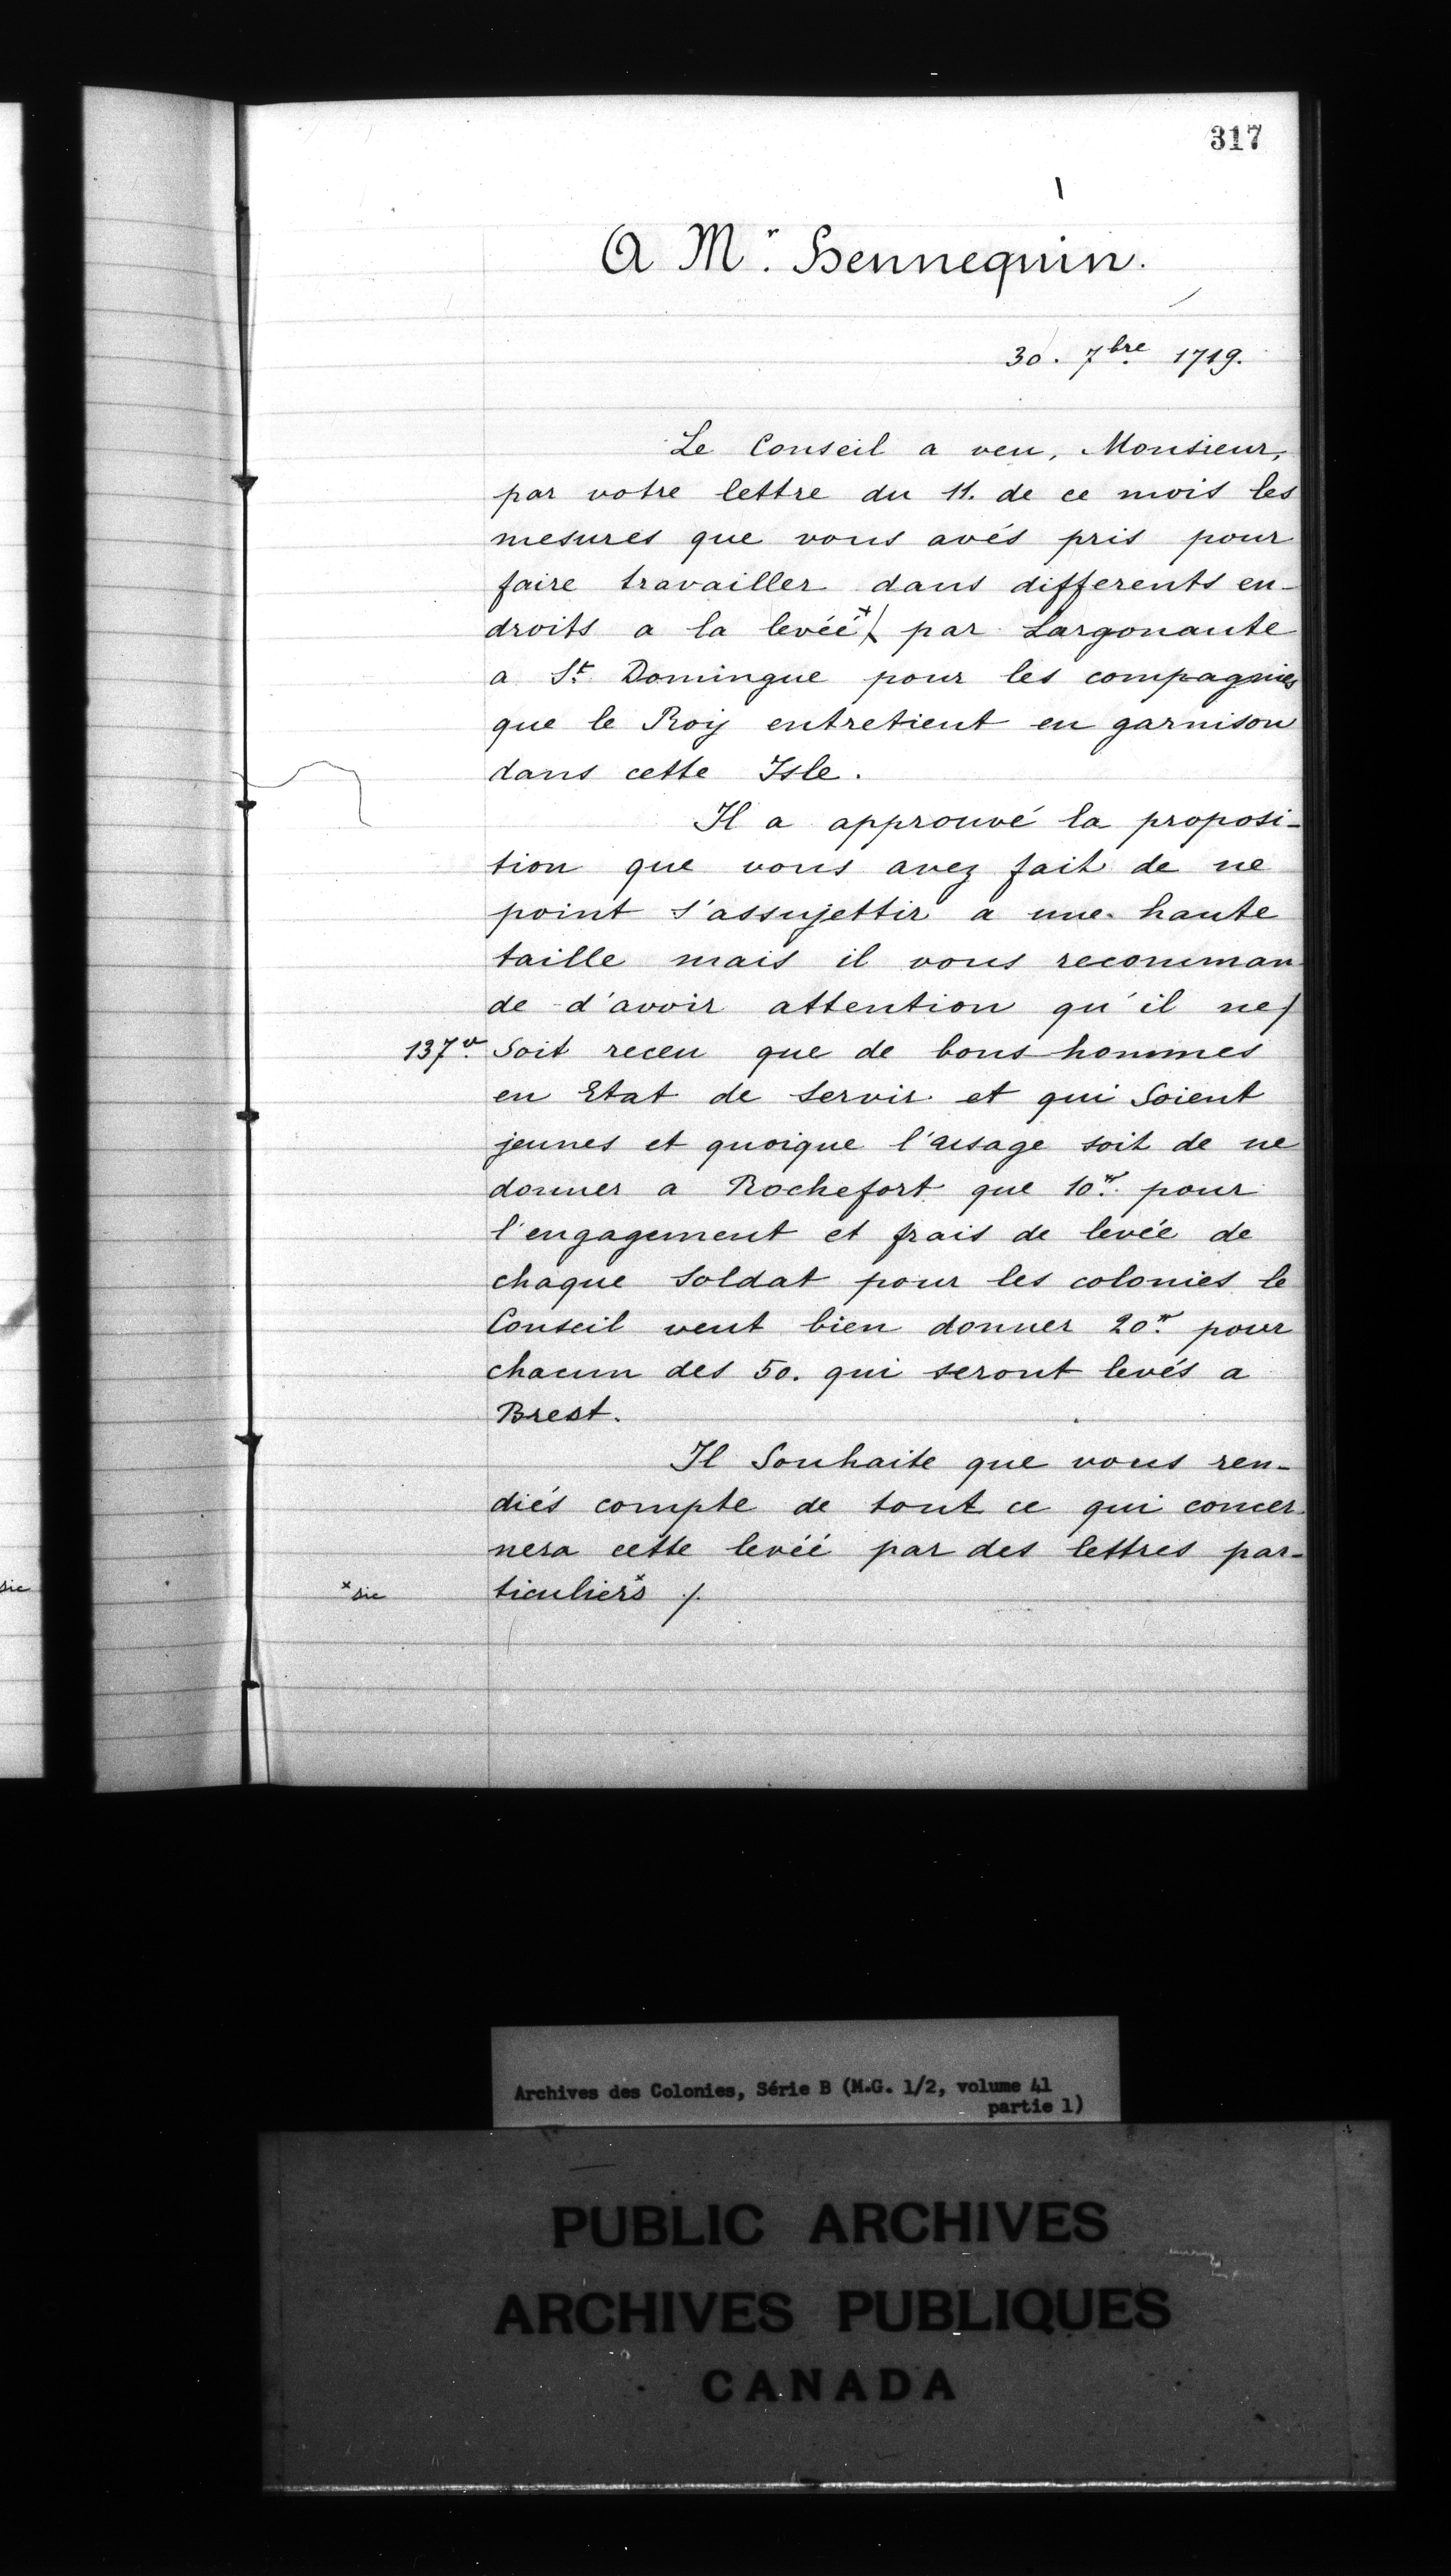 317
A Mr. Hennequin.
30. 7bre 1719.
Le Conseil a veu, Monsieur,
par votre lettre du 11. de ce mois les
mesures que vous avés pris pour
faire travailler dans differents en-
droits a la levéé x par Largonaute
a St. Domingue pour les compagnies
que le Roij entretient en garnison
dans cette Isle.
Il a approuvé la proposi-
tion que vous avez fait de ne
point s'assujettir a une haute
taille mais il vous recomman
de d'avoir attention qu'il ne/
137v. Soit receu que de bons hommes
en Etat de servir et qui Soient
jeunes et quoique l'usage soit de ne
donner a Rochefort que 10# pour
l'engagement et frais de levée de
chaque soldat pour les colonies le
Conseil veut bien donner 20# pour
chacun des 50. qui seront levés a
Brest.
Il Souhaite que vous ren-
diés compte de tout ce qui concer
nera cette levéé par des lettres par-
x sic ticuliers x /.
sic
Archives des Colonies, Série B (M.G. 1/2, volume 41
partie 1)
PUBLIC ARCHIVES
ARCHIVES PUBLIQUES
CANADA